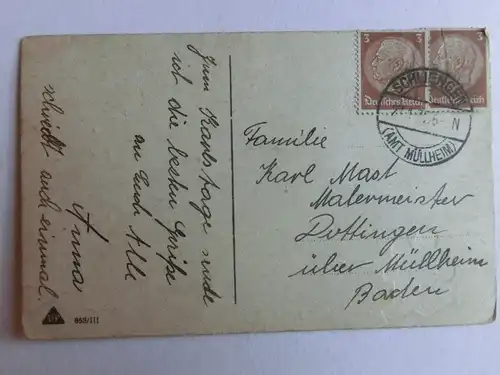 Zum Karlstage sende
ich die besten Grüße
an Euch Alle
Anna
schreibt auch einmal.
953/III
3
3
Deutsches Reich
Deutsches Reich
SCHLIENGEN
N
(AMT MÜLLHEIM)
Familie
Karl Mast
Malermeister
Dottingen
über Müllheim
Baden